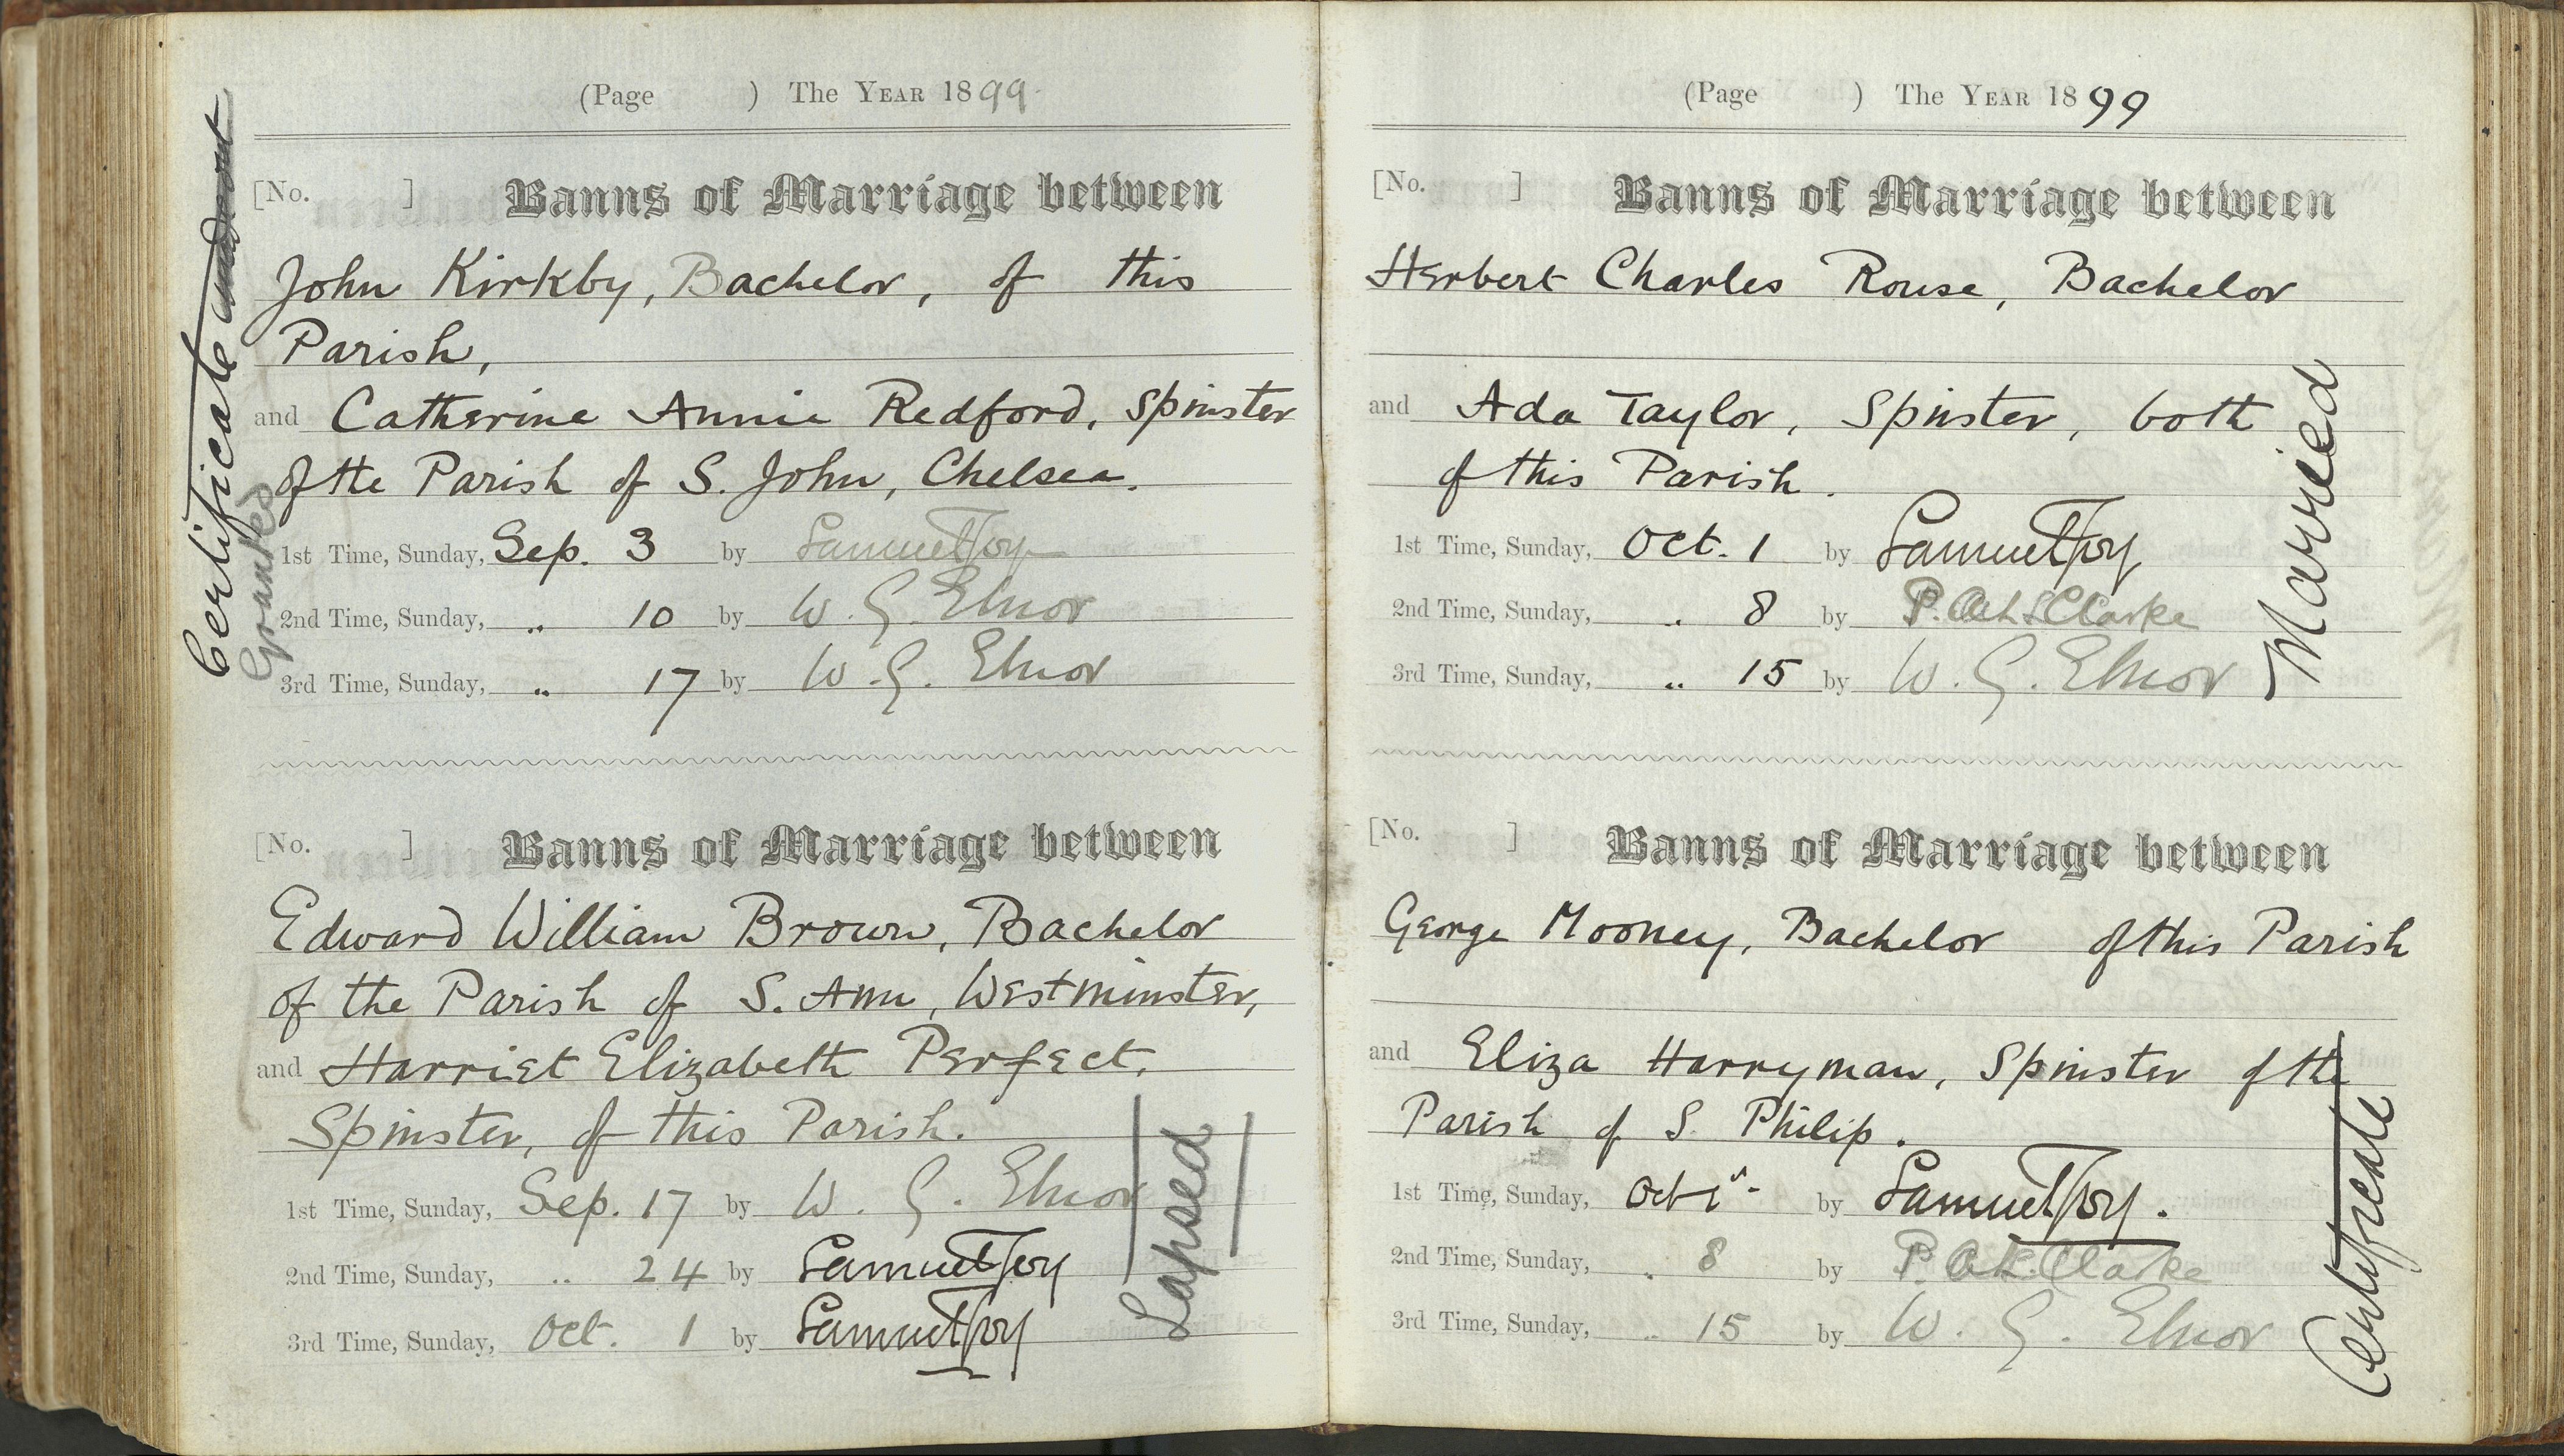 (Page ) The YEAR 1899
[No. ] Banns of Marriage between
John Kirkby, Bachelor, of this
Parish,
and Catherine Annie Redford, Spinster
of the Parish of S. John, Chelsea.
1st Time, Sunday, Sep. 3 by Samuel Joy
2nd Time, Sunday, " 10 by W. G. Elnor
3rd Time, Sunday, " 17 by W. G. Elnor
Certificate
Granted
[No. ] Banns of Marriage between
Edward William Brown, Bachelor
of the Parish of S. Ann, Westminster,
and Harriet Elizabeth Perfect,
Spinster, of this Parish.
1st Time, Sunday, Sep. 17 by W. G. Elnor
2nd Time, Sunday, " 24 by Samuel Joy
3rd Time, Sunday, Oct. 1 by Samuel Joy
Lapsed
(Page ) The YEAR 1899
[No. ] Banns of Marriage between
Herbert Charles Rouse, Bachelor
and Ada Taylor, Spinster, both
of this Parish.
1st Time, Sunday, Oct. 1 by Samuel Joy
2nd Time, Sunday, " 8 by P. Clarke
3rd Time, Sunday, " 15 by W. G. Elnor
Married
[No. ] Banns of Marriage between
George Mooney, Bachelor of this Parish
and Eliza Harryman, Spinster of the
Parish of S. Philip.
1st Time, Sunday, Oct 1st by Samuel Joy.
2nd Time, Sunday, " 8 by P. Clarke
3rd Time, Sunday, " 15 by W. G. Elnor
Certificate